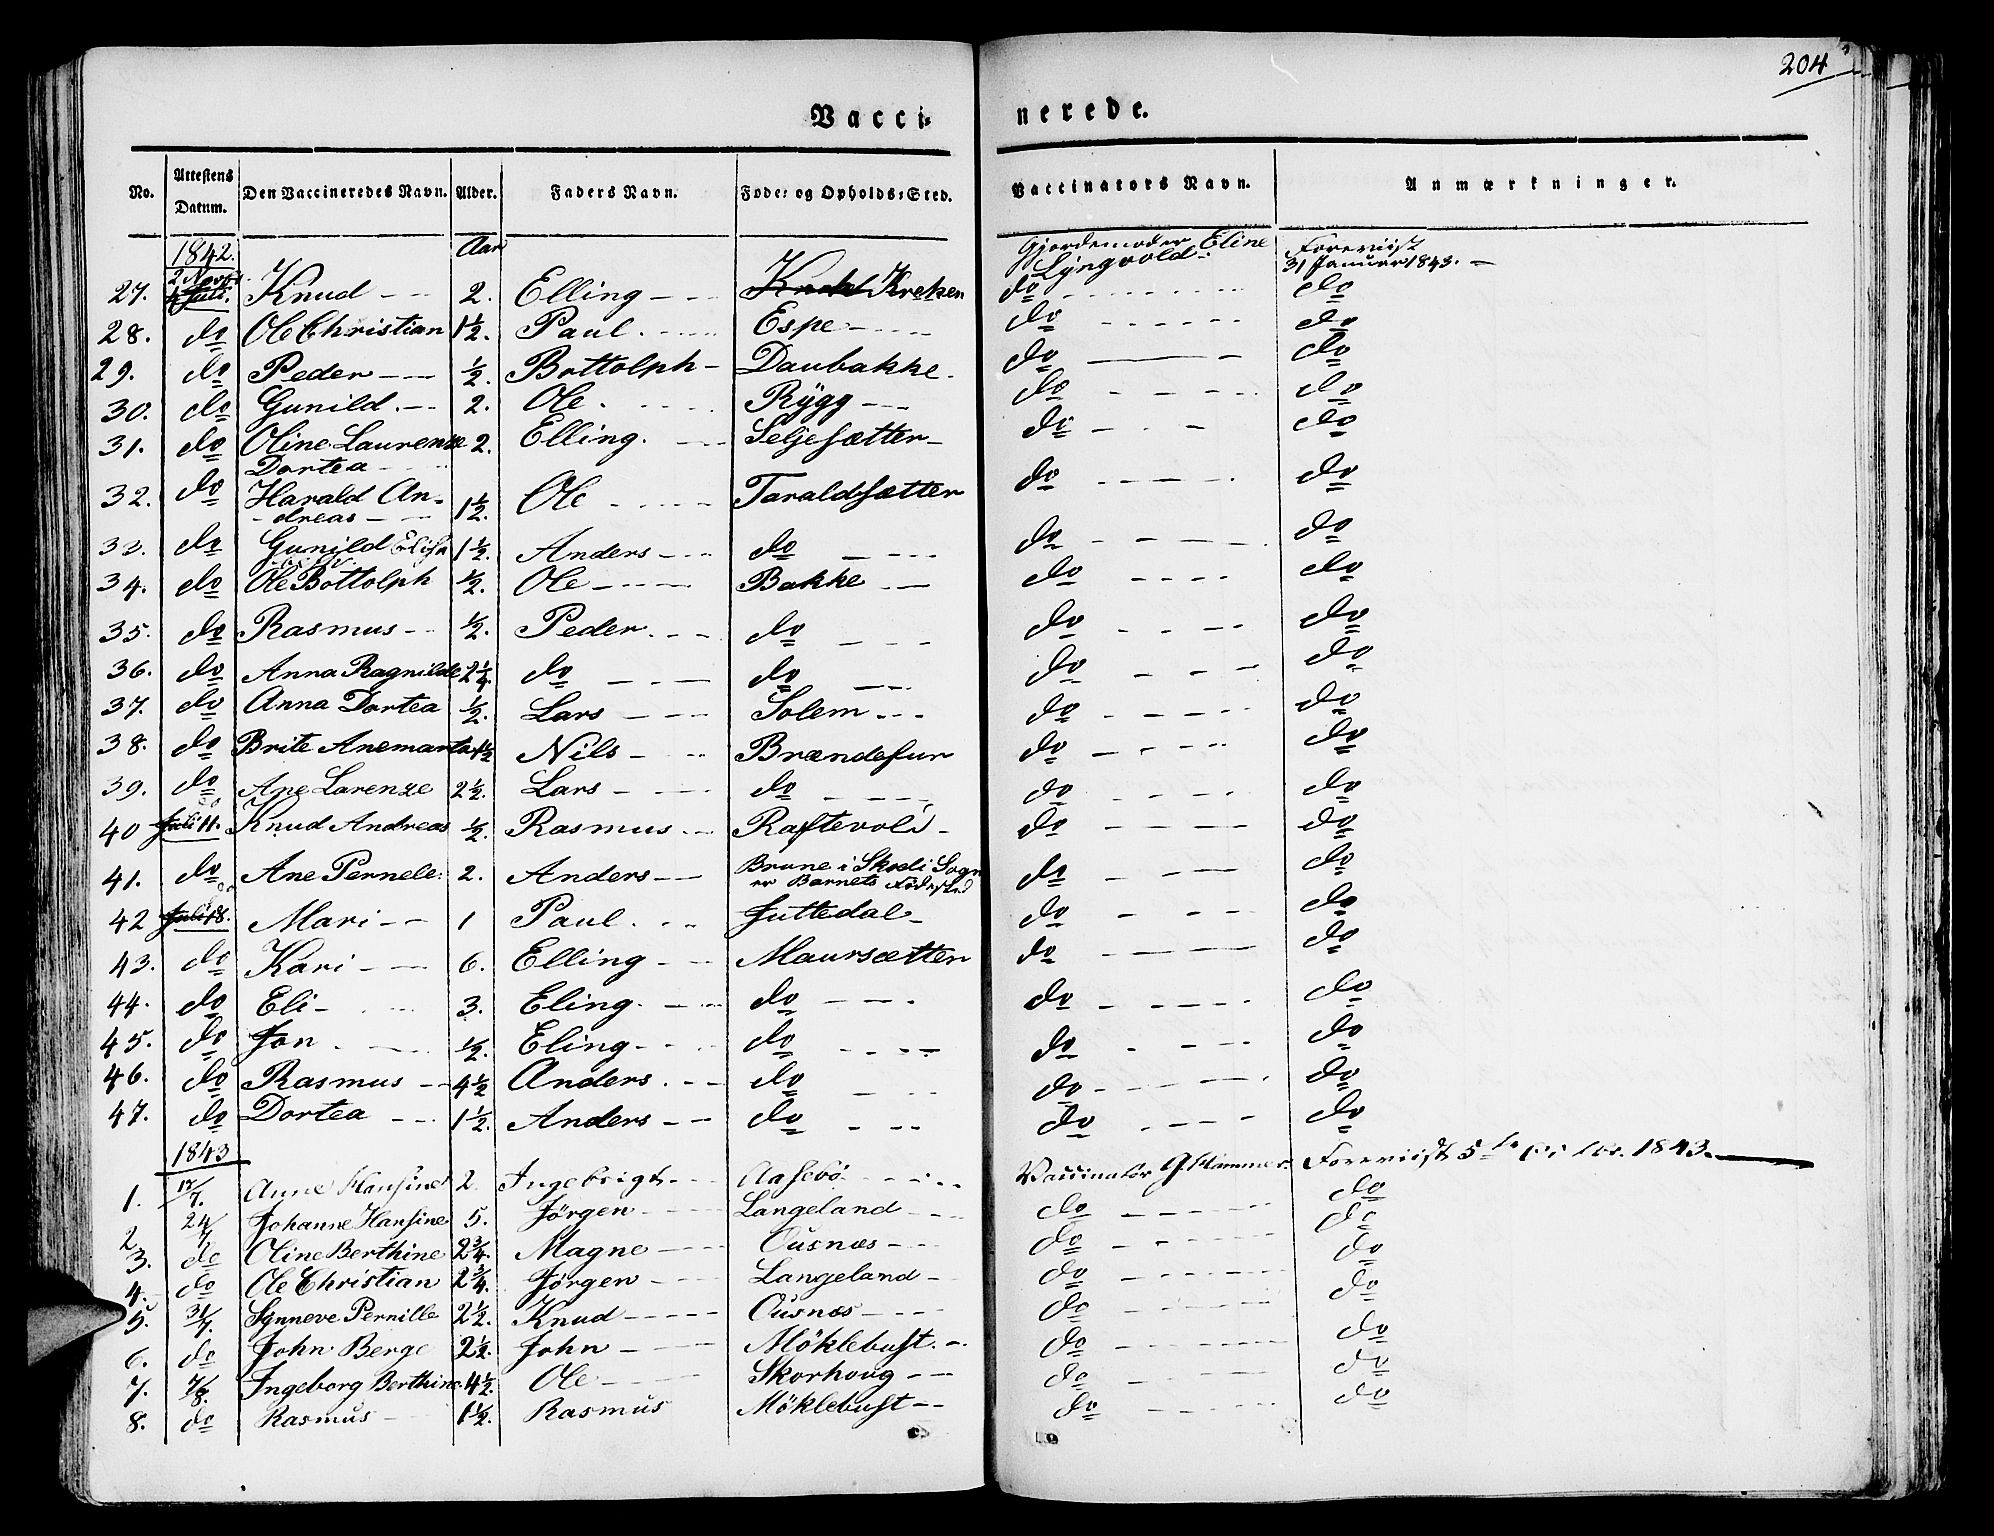 204
Vacci- nerede.
No. Attestens Datum. Den Vaccineredes Navn. Alder. Faders Navn. Føde- og Opholds-Sted. Vaccinators Navn. Anmærkninger.
1842. Aar Gjordemoder Eline Foreviist
2 Novbr. Lyngvold. 31 Januar 1843. –
27. 4 Juli. Knud – – 2. Elling – – – Kreken do do
28. do Ole Christian 1½. Paul. Espe – – do do
29. do Peder – – ½. Bottolph – Daubakke. do do
30. do Gunild. – – 2. Ole. Rÿgg – – do do
31. do Oline Laurenze 2. Elling. Seljesætter – do do
Dortea –
32. do Harald An- 1½. Ole Taraldsætter do do
– dreas –
33. do Gunild Elisa 1½. Anders – – do do do
34. do Ole Bottolph ½. Ole – – Bakke – – do do
35. do Rasmus – – ½. Peder. – – do do do
36. do Anna Ragnilde 2¼. do do do do
37. do Anna Dortea ½. Lars – – – Solem – – do do
38. do Brite Anemarta 1½ Nils – – Brændesur do do
39. do Ane Larenze 2½. Lars – – do do do
do
40 Juli 11. Knud Andreas ½. Rasmus – – Raftevold – do do
41. do Ane Pernele. 2. Anders – – Brune i Skodi Sogn do do
er Barnets Fødested
do
42 Juli 18. Mari – – 1 Paul. – – Juttedal – do do
43. do Kari – – 6. Elling – – Maursætter do do
44. do Eli – 3. Eling. – – do do do
45. do Jon. – ½. Eling – – do do do
46. do Rasmus – – 4½ Anders. – – do do do
47. do Dortea – – 1½. Anders – – do do do
1843
1. 17/7. Anne Hansine 2. Ingebrigt – – Aasebö Vaccinatør G. Hammer. Foreviist 5 1843.
2. 24/7 Johanne Hansine 5. Jörgen – – Langeland do do
3. do Oline Berthine 2¾. Magne – – Ousnæs – – do do
4. do Ole Christian 2¾. Jörgen – – Langeland – do do
5. 31/7. Synneve Pernille 2½. Knud – – Ousnæs – – do do
6. do John Berge 2½. John – – Möklebust. – do do
7. 7/8. Ingeborg Berthine 4½. Ole – – Skorhoug – – do do
8. do Rasmus – 1½. Rasmus Möklebust – – do do